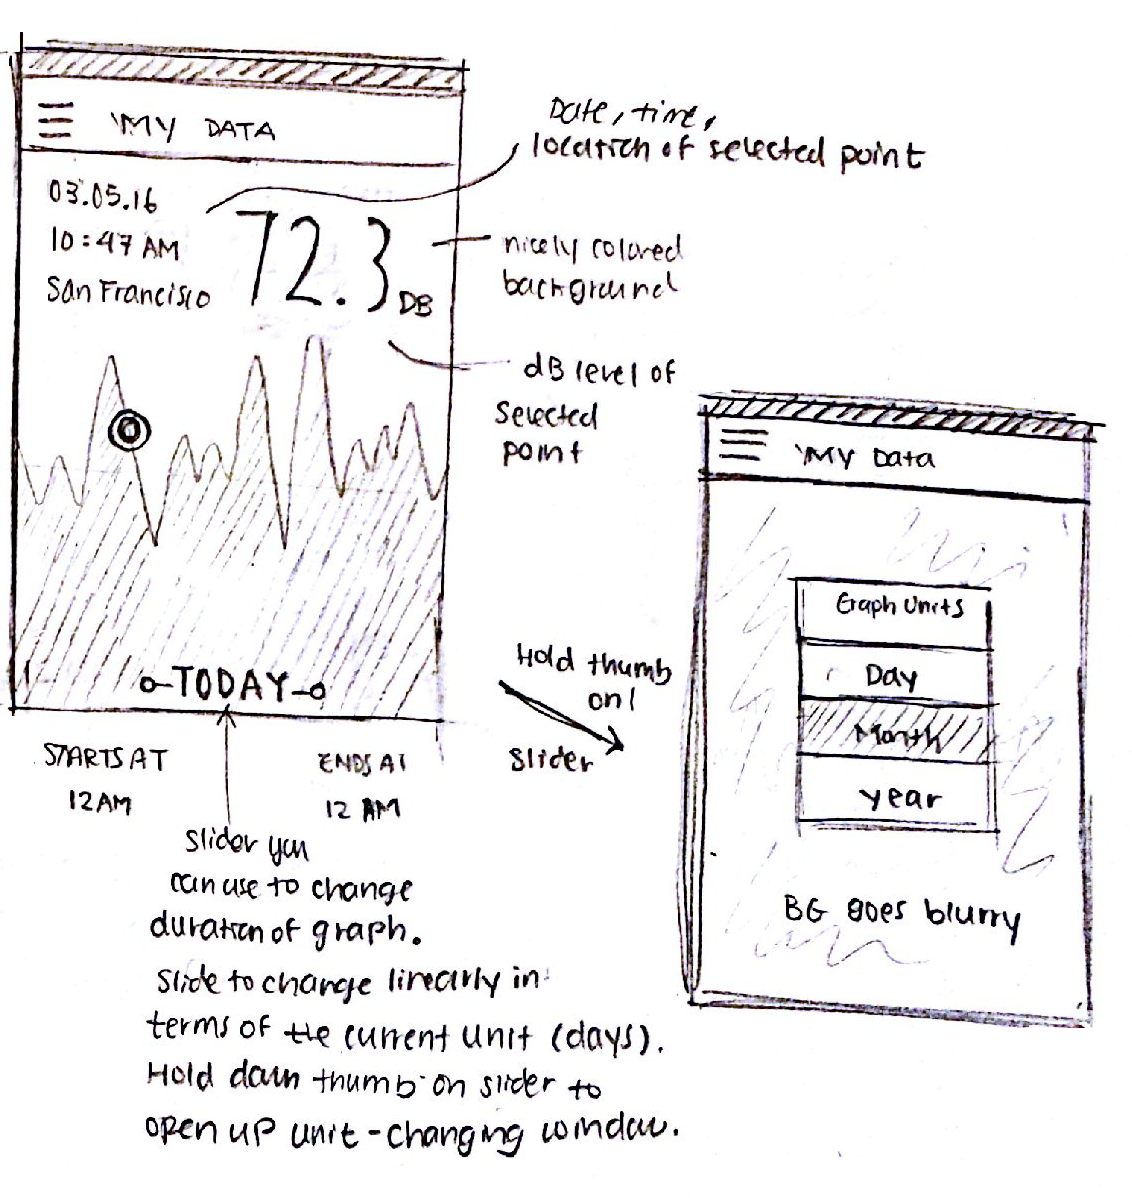 MY DATA
03.05.16
10:47 AM
San Francisco
72.3 DB
Date, time,
location of selected point
nicely colored
background
dB level of
selected
point
TODAY
STARTS AT
12 AM
ENDS AT
12 AM
slider you
can use to change
duration of graph.
Slide to change linearly in
terms of the current unit (days).
Hold down thumb on slider to
open up unit-changing window.
Hold thumb
on
slider
MY Data
Graph Units
Day
Month
year
BG goes blurry